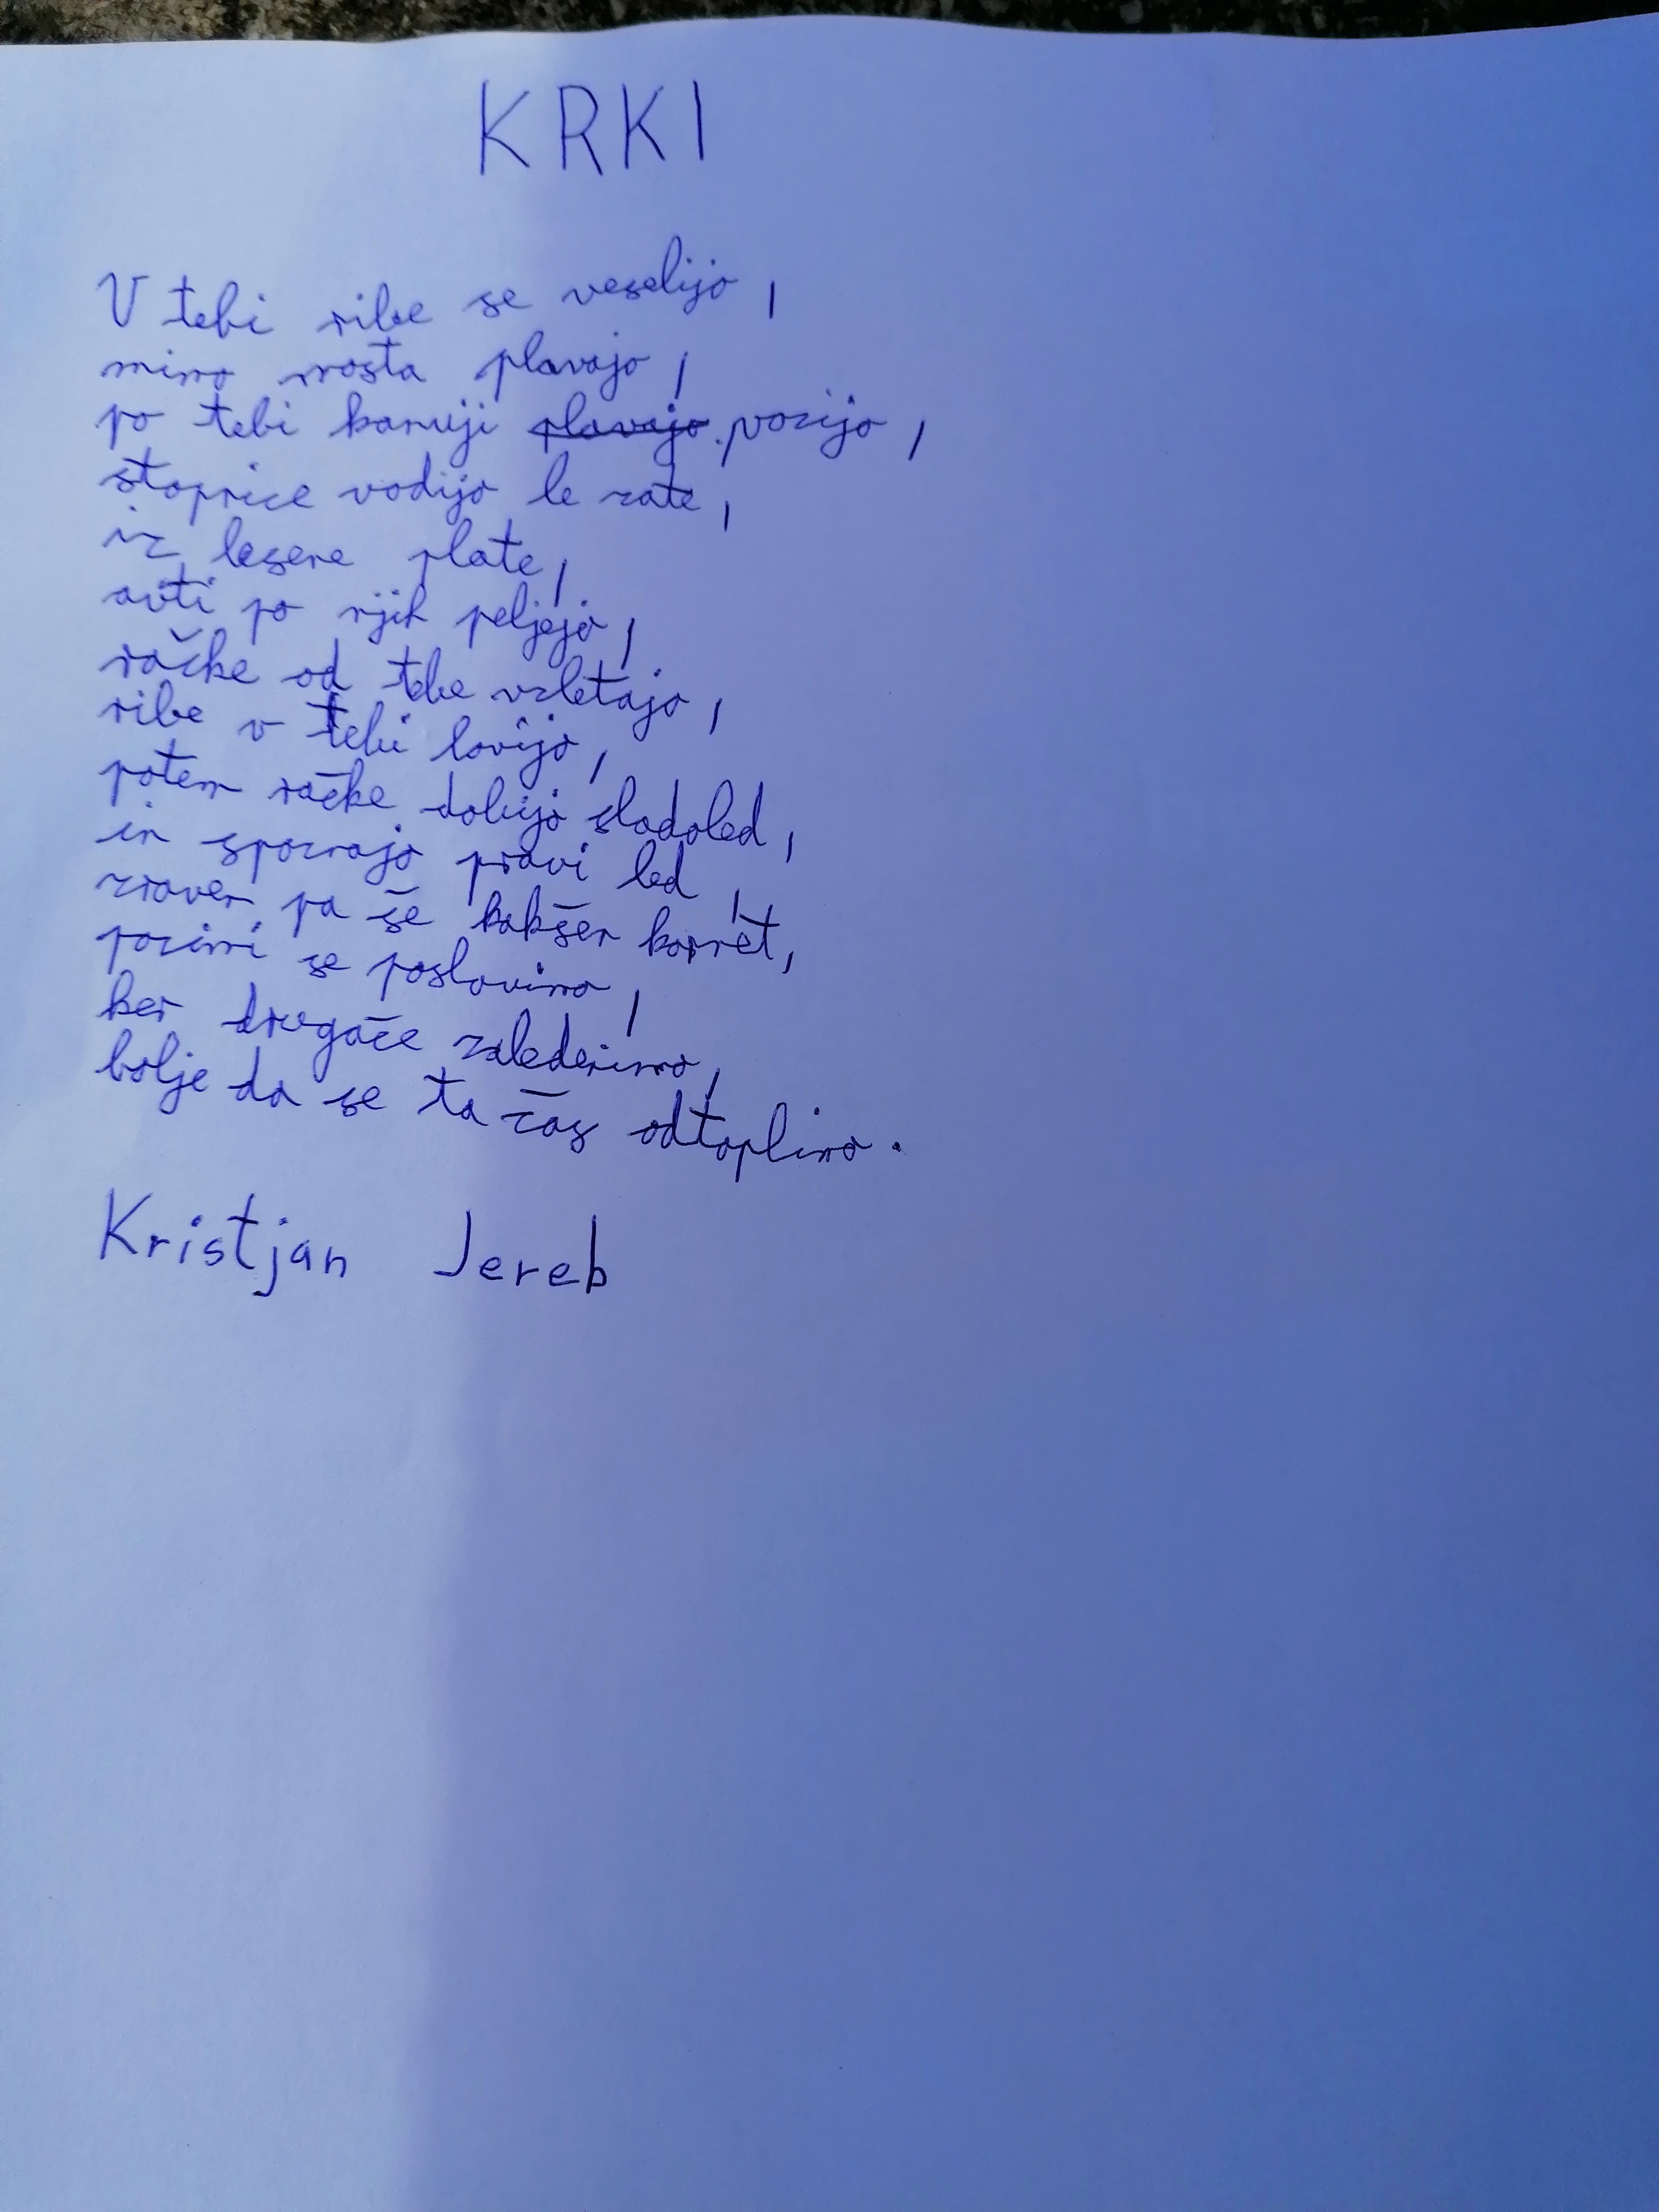 KRKI
V tebi ribe se veselijo,
mimo mosta plavajo,
po tebi kanuji plavajo vozijo,
stopnice vodijo le zate,
iz lesene plate,
avti po njih peljejo,
račke od tebe vzletajo,
ribe v tebi lovijo,
potem račke dobijo sladoled,
in spoznajo pravi led,
zraven pa še kakšen kornet,
pozimi se poslovimo,
ker drugače zaledenimo,
bolje da se ta čas odtoplimo.
Kristjan Jereb